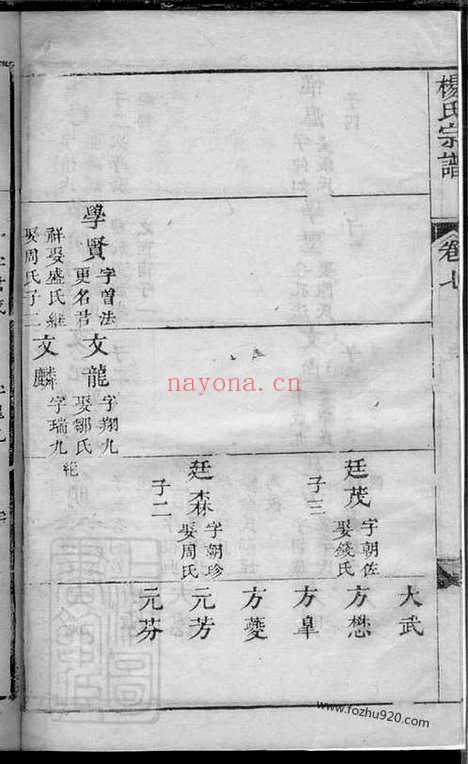 楊氏宗譜
卷七
學賢
字曾法
更名君
祥娶盛氏繼
娶周氏子二
文龍
字翔九
娶鄒氏
文麟
字瑞九
廷茂
字朝佐
娶錢氏
子三
廷森
字朝珍
娶周氏
子二
大武
方懋
方皐
方夔
元芳
元芬
nayona.cn
www.fozhu920.com